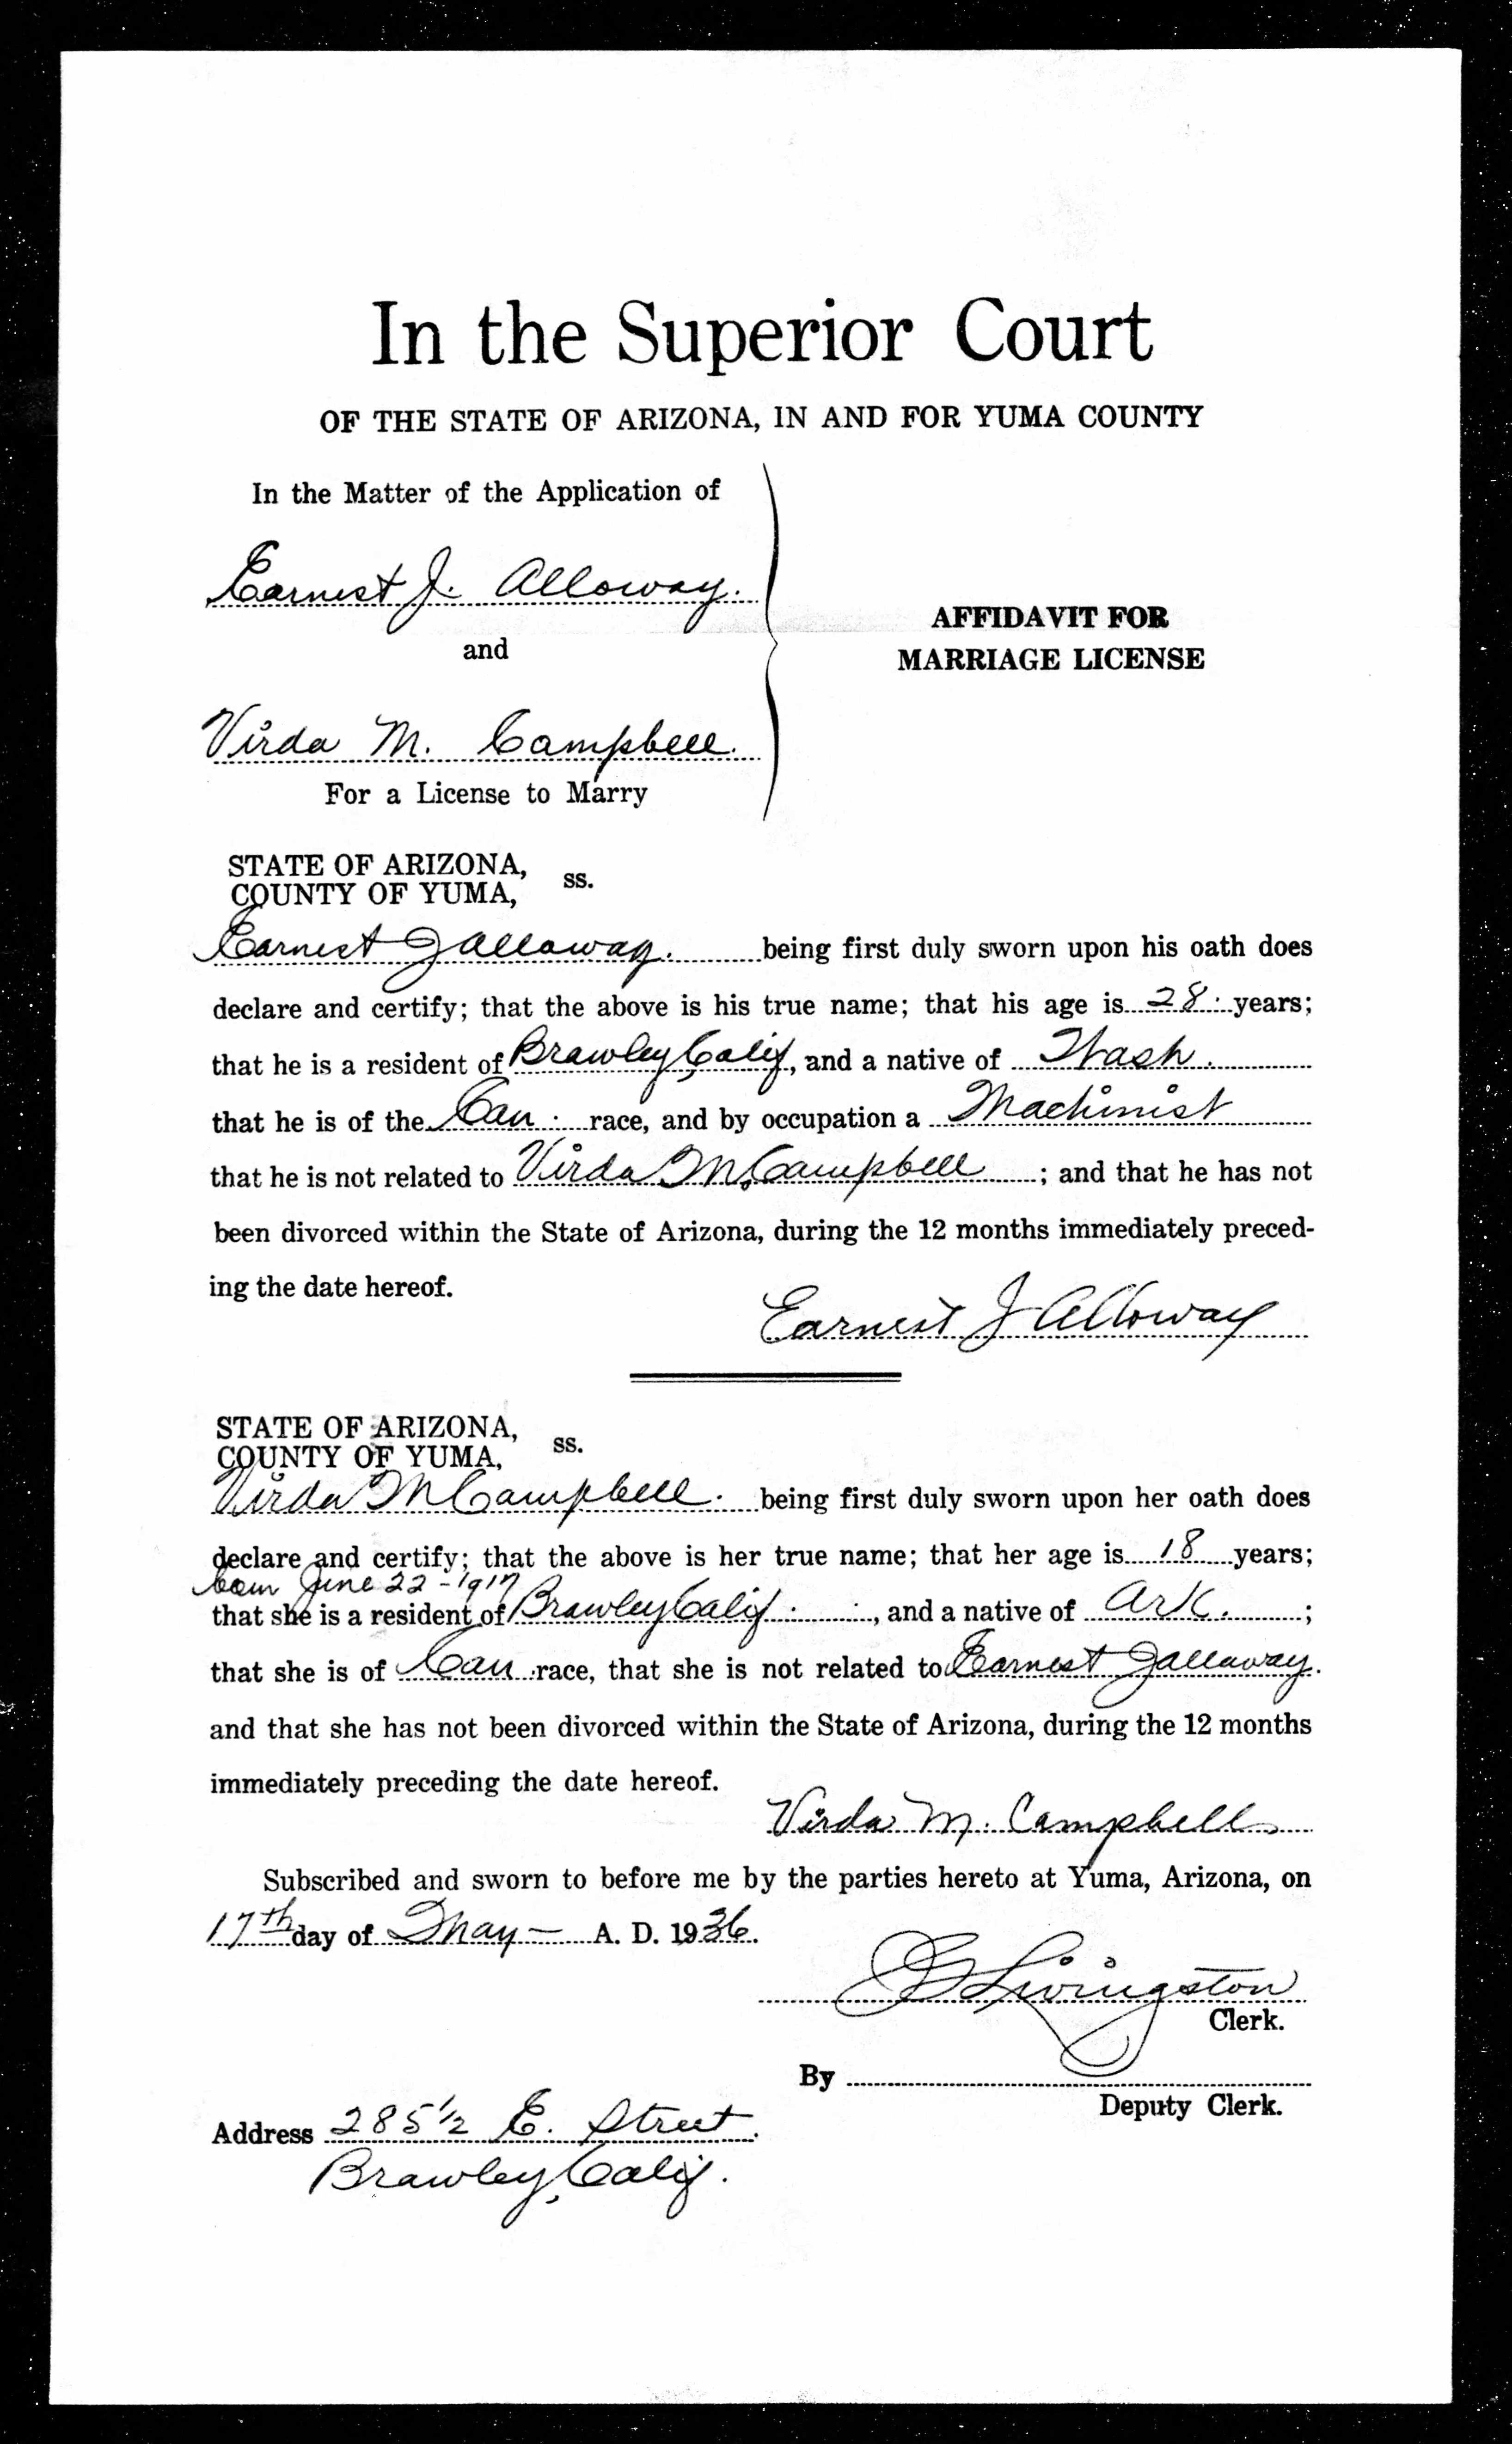 In the Superior Court
OF THE STATE OF ARIZONA, IN AND FOR YUMA COUNTY
In the Matter of the Application of
Earnest J. Alloway.
and
Virda M. Campbell.
For a License to Marry
AFFIDAVIT FOR
MARRIAGE LICENSE
STATE OF ARIZONA,
COUNTY OF YUMA, ss.
Earnest J Alloway. being first duly sworn upon his oath does
declare and certify; that the above is his true name; that his age is 28. years;
that he is a resident of Brawley, Calif, and a native of Wash.
that he is of the Cau. race, and by occupation a Machinist
that he is not related to Virda M. Campbell; and that he has not
been divorced within the State of Arizona, during the 12 months immediately preced-
ing the date hereof.
Earnest J Alloway
STATE OF ARIZONA,
COUNTY OF YUMA, ss.
Virda M Campbell. being first duly sworn upon her oath does
declare and certify; that the above is her true name; that her age is 18 years;
born June 22 - 1917
that she is a resident of Brawley Calif., and a native of Ark.;
that she is of Cau race, that she is not related to Earnest J Alloway.
and that she has not been divorced within the State of Arizona, during the 12 months
immediately preceding the date hereof.
Virda M. Campbell
Subscribed and sworn to before me by the parties hereto at Yuma, Arizona, on
17th day of May - A. D. 1936.
Livingston
Clerk.
By
Deputy Clerk.
Address 285 1/2 E. Street.
Brawley, Calif.